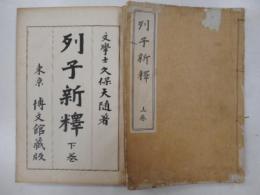 文學士久保天随著
列子新釋 下巻
東京 博文館蔵版
列子新釋 上巻